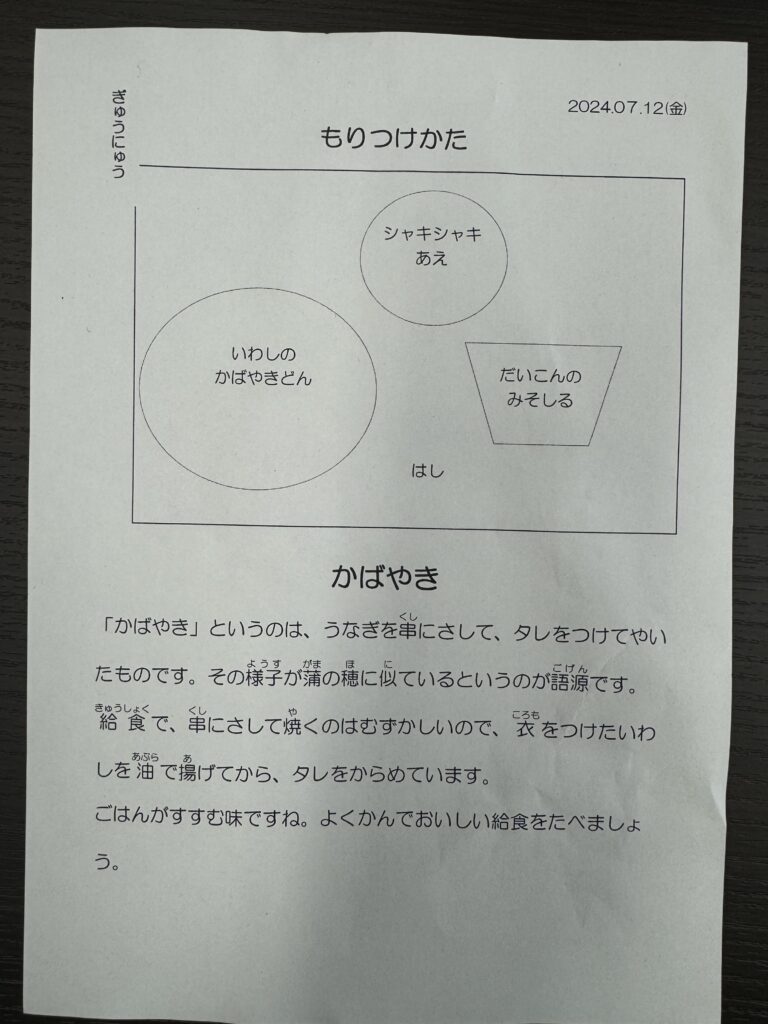 2024.07.12(金)
ぎゅうにゅう
もりつけかた
シャキシャキ
あえ
いわしの
かばやきどん
だいこんの
みそしる
はし
かばやき
「かばやき」というのは、うなぎを串にさして、タレをつけてやい
たものです。その様子が蒲の穂に似ているというのが語源です。
給食で、串にさして焼くのはむずかしいので、衣をつけたいわ
しを油で揚げてから、タレをからめています。
ごはんがすすむ味ですね。よくかんでおいしい給食をたべましょ
う。